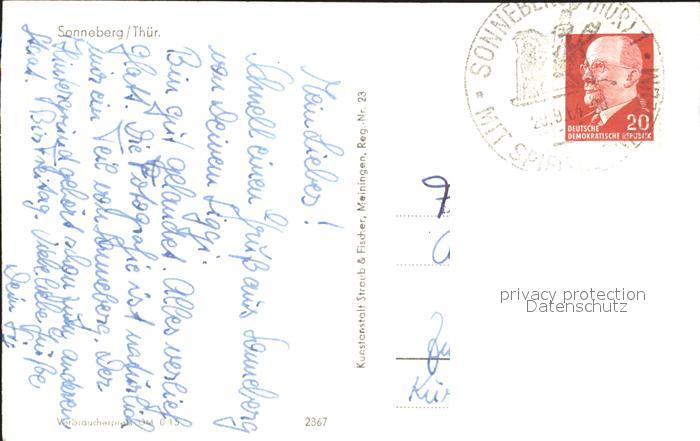 Sonneberg/Thür.
Mein Lieber!
Schnell einen Gruß aus Sonneberg
von Deinem Siggi.
Bin gut gelandet. Alles verlief
glatt. Die Fotografie ist natürlich
nur ein Teil von Sonneberg. Der
Hintergrund gehört schon zum anderen
Staat. Bis Freitag. Viele liebe Grüße
Dein
Verbraucherpreis DM 0.15
2367
Kunstanstalt Straub & Fischer, Meiningen, Reg.-Nr. 23
SONNEBERG (THÜR) 1
MIT SPIEL
DEUTSCHE
DEMOKRATISCHE REPUBLIK
20
privacy protection
Datenschutz